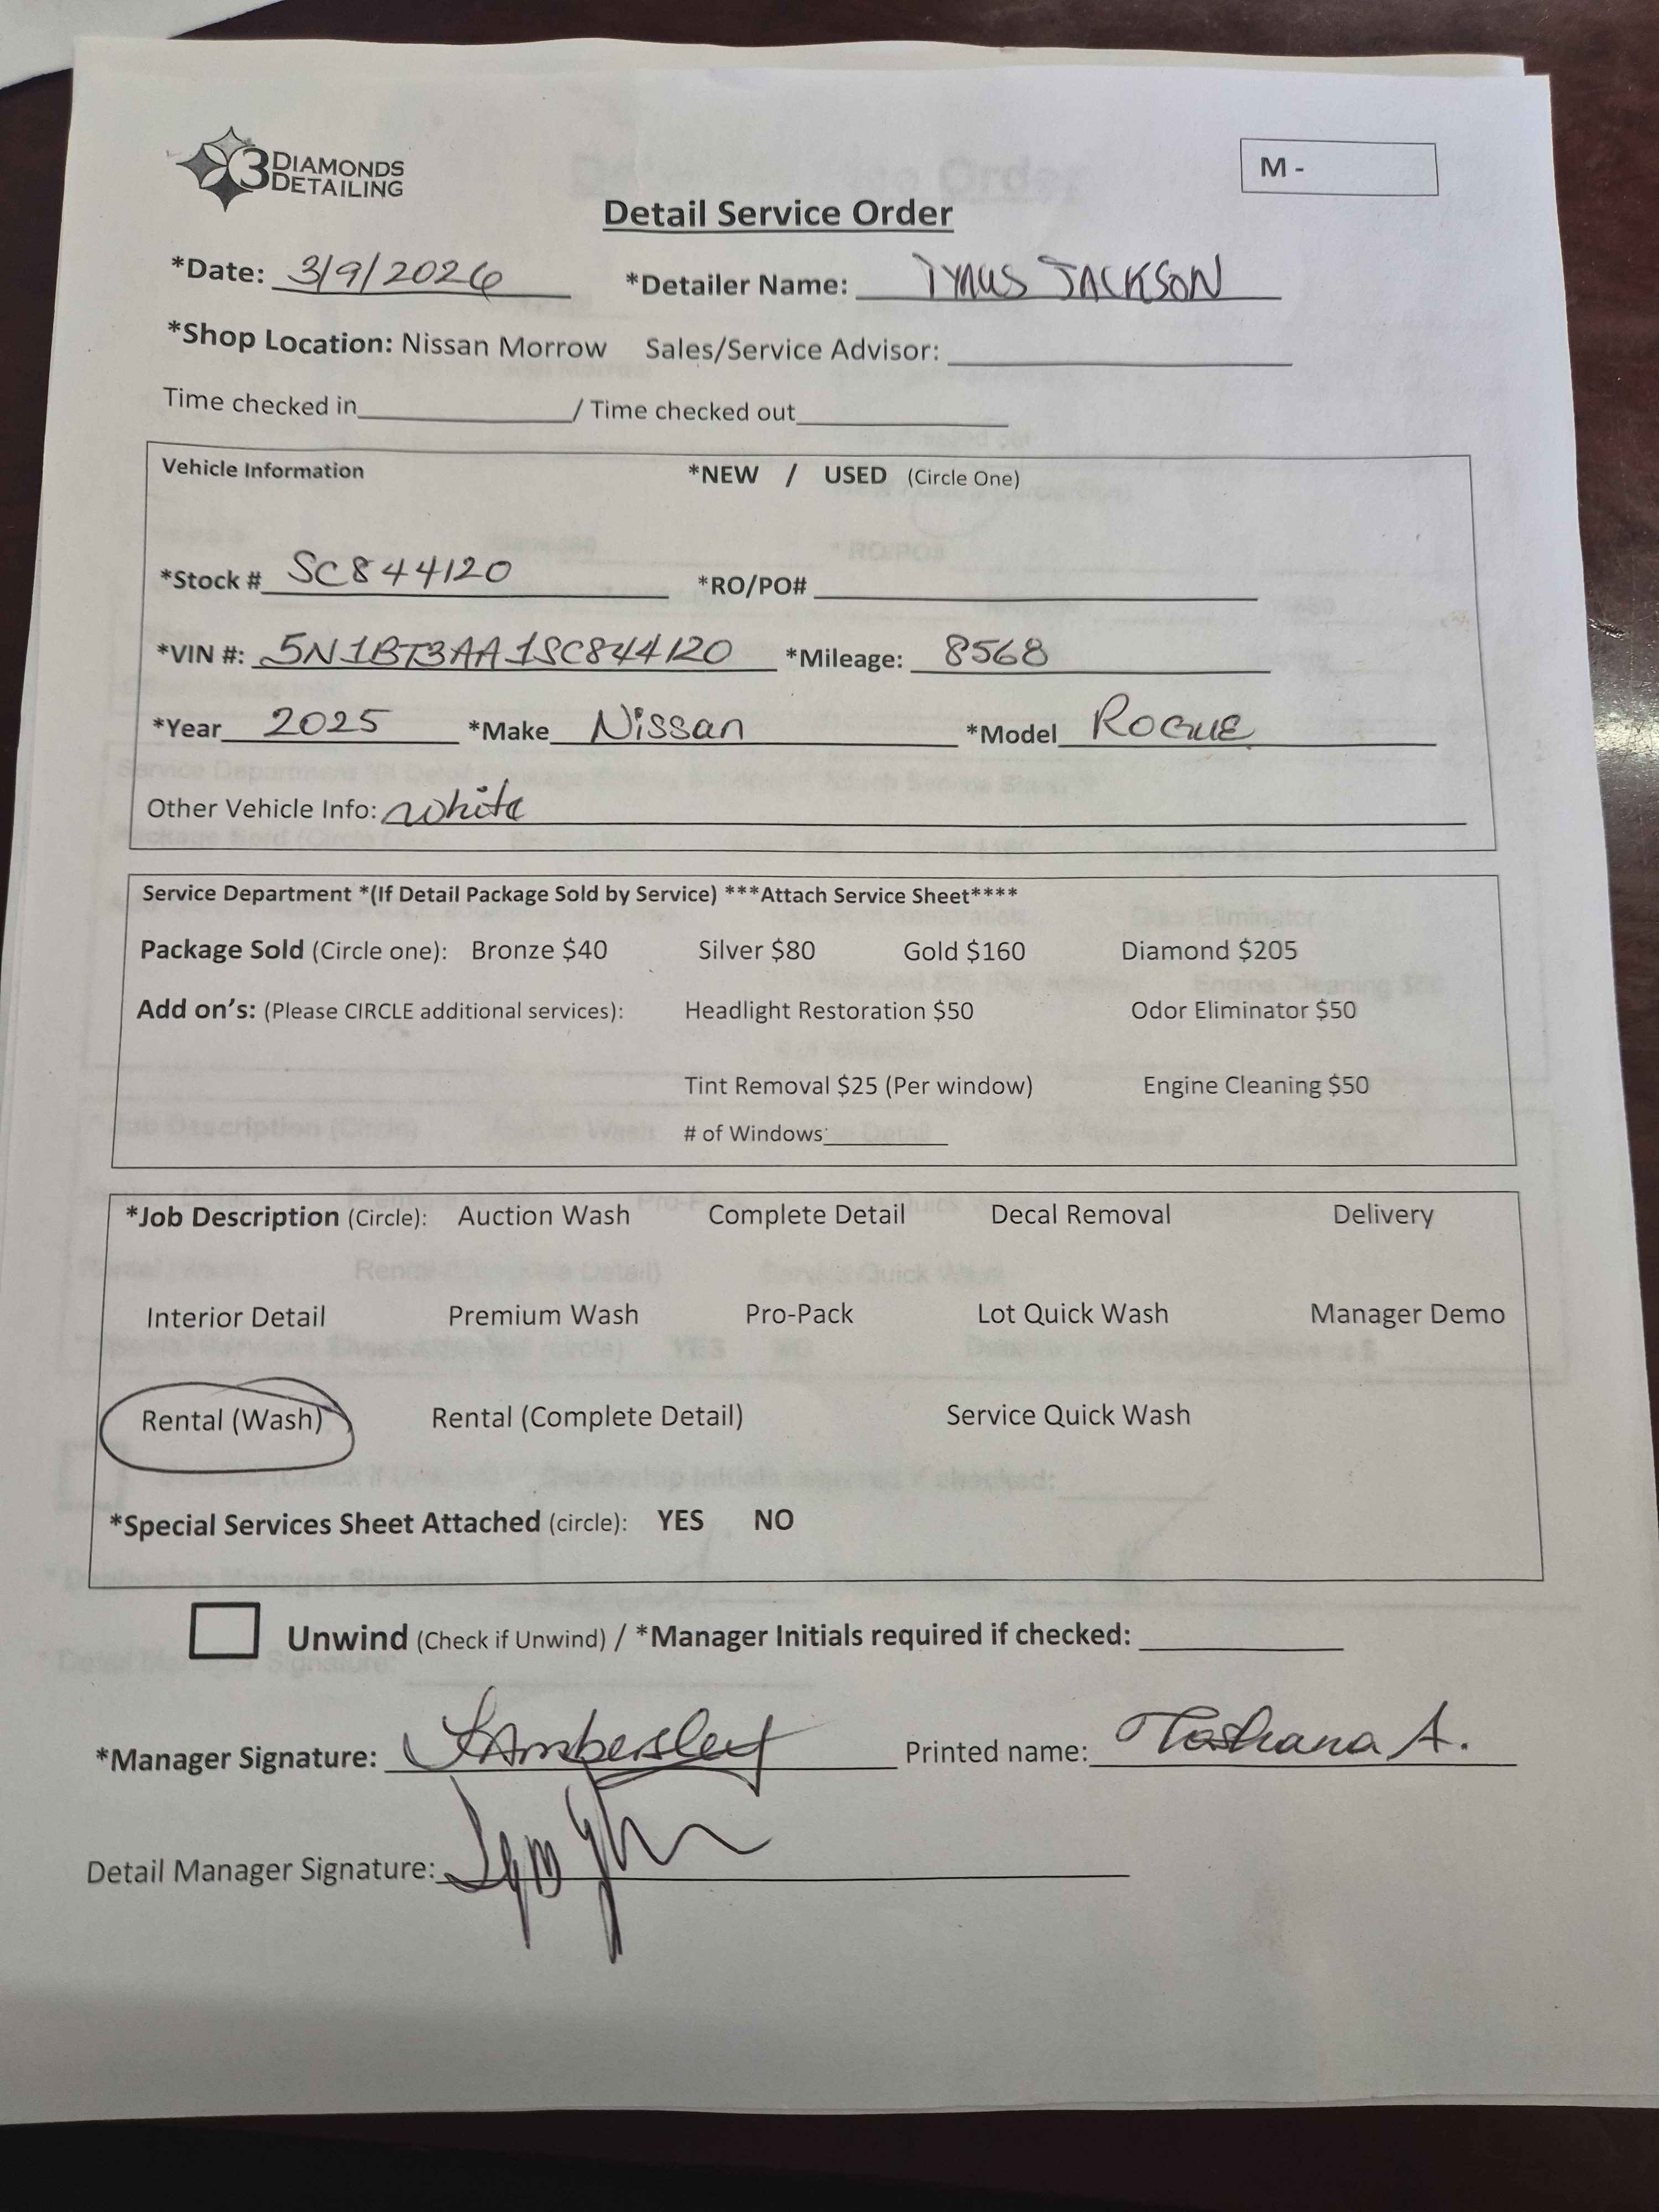 3 DIAMONDS DETAILING
M -
Detail Service Order
*Date: 3/9/2026 *Detailer Name: JACKSON
*Shop Location: Nissan Morrow Sales/Service Advisor:
Time checked in / Time checked out
Vehicle Information *NEW / USED (Circle One)
*Stock # SC844120 *RO/PO#
*VIN #: 5N1BT3AA1SC844120 *Mileage: 8568
*Year 2025 *Make Nissan *Model ROGUE
Other Vehicle Info: white
Service Department *(If Detail Package Sold by Service) ***Attach Service Sheet****
Package Sold (Circle one): Bronze $40 Silver $80 Gold $160 Diamond $205
Add on's: (Please CIRCLE additional services): Headlight Restoration $50 Odor Eliminator $50
Tint Removal $25 (Per window) Engine Cleaning $50
# of Windows:
*Job Description (Circle): Auction Wash Complete Detail Decal Removal Delivery
Interior Detail Premium Wash Pro-Pack Lot Quick Wash Manager Demo
Rental (Wash) Rental (Complete Detail) Service Quick Wash
*Special Services Sheet Attached (circle): YES NO
Unwind (Check if Unwind) / *Manager Initials required if checked:
*Manager Signature: Printed name: Tashana A.
Detail Manager Signature: